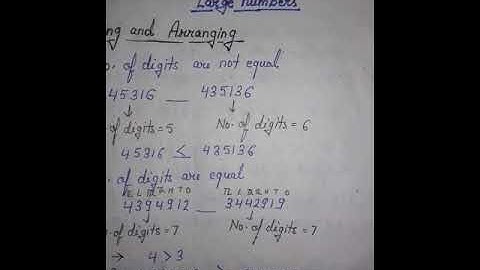 Large numbers
ng and Arranging
o. of digits are not equal
45316 __ 435136
↓ ↓
of digits = 5 No. of digits = 6
45316 < 435136
of digits are equal
TL L TTH TH H T O TL L TTH TH H T O
4394912 __ 3442919
↓ ↓
of digits = 7 No. of digits = 7
→ 4 > 3